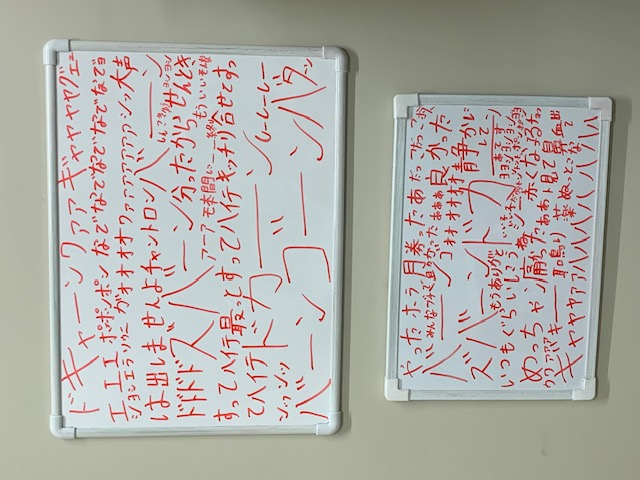 ドギャーンワァァギャャャャグェェ
エエエポポンポンなでなでなでなでなでョ
ションエラソウニガオオオオワァァァァァァァシッ大声
は出しませんよチャントロンバーン
ドドドドズバーン分ったからせんとき
もういいそんな
アーアモ本間に＿＿終り
すってハイテ最っとすってハイテキッチリ合せてすっ
てハイテドカーーンしーしーしー
ンッンッ
バーンゴーンバターン
やったホラ月券ったあだっこだっこ
みんなブチで
バーンゴオォォォォ良かった
ぁぁぁ
静かに
してン
ズバーンドカーーン
もうありがと
いつもぐらいしこう
ヨヨシヨシヨシヨシ
めっちゃン痛かったね赤くなるちっ
ウワァァァキーー耳鳴りああト見て鼻血出て
薬ぬっとこな
ギャャャァァハハハハハハハ